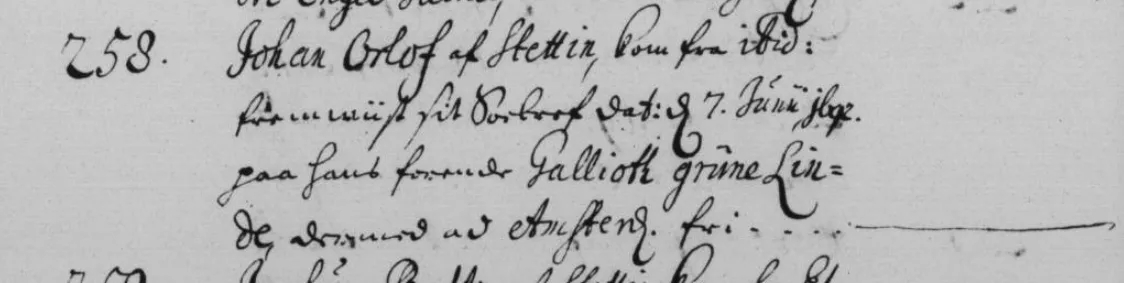 258. Johan Orlof af Stettin, kom fra ibid:
fremwiist sit Söebref dat: d 7. Junii
paa hans förende Gallioth grüne Lin=
de, dermed ad Amsterd. fri - - - -